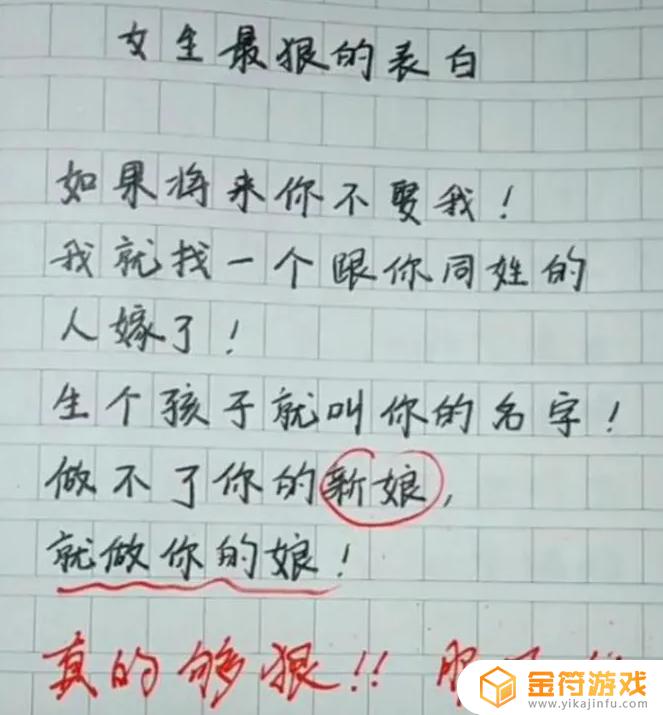 女生最狠的表白
如果将来你不娶我！
我就找一个跟你同姓的
人嫁了！
生个孩子就叫你的名字！
做不了你的新娘，
就做你的娘！
真的够狠!! 服
金符游戏
www.yikajinfu.com